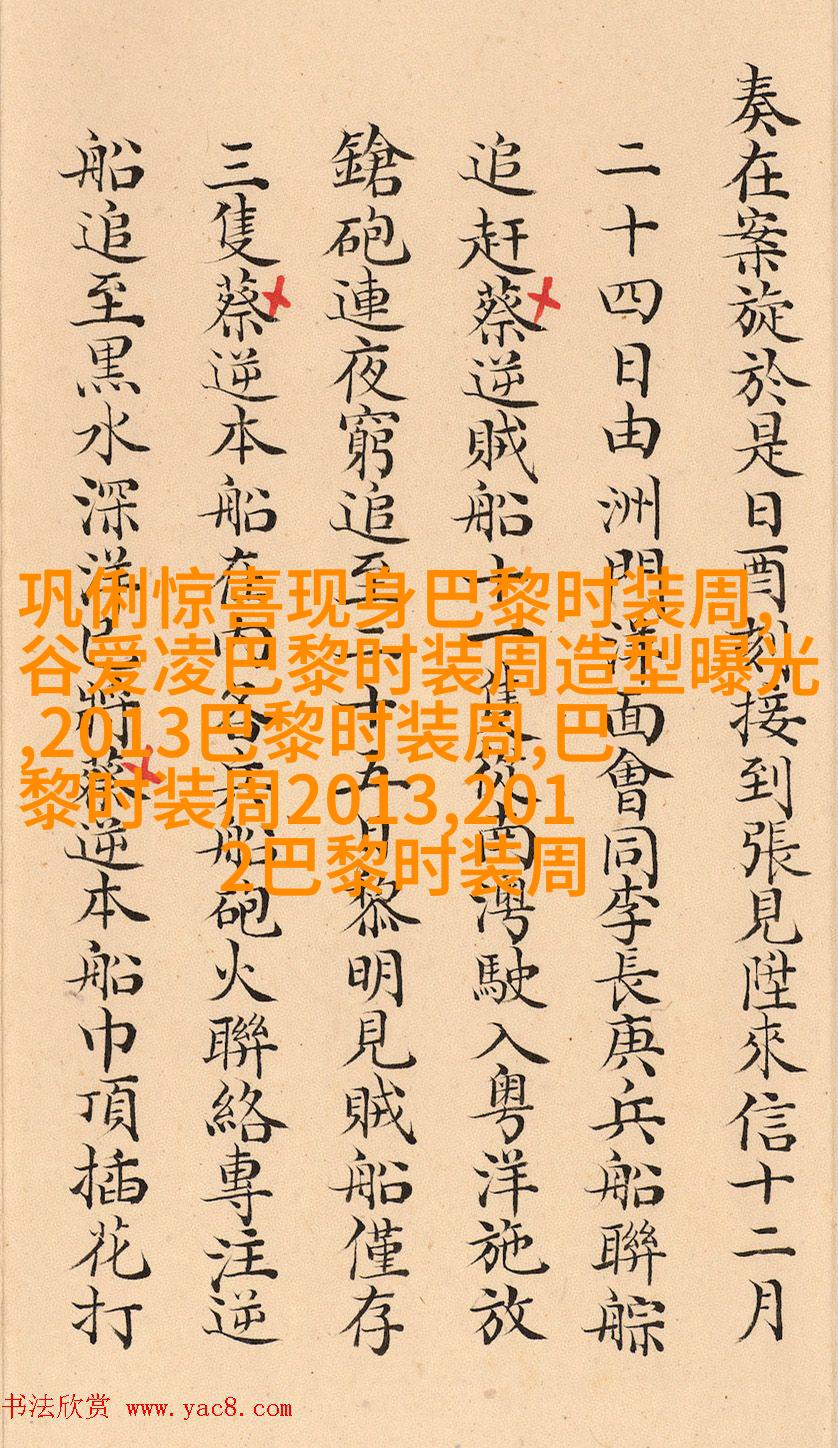 奏在案旋於是日酉刻接到張見陞來信十二月
二十四日由洲門洋面會同李長庚兵船聯䑸
追赶蔡逆賊船十一隻從南灣駛入粤洋施放
鎗砲連夜窮追至二十五日黎明見賊船僅存
三隻蔡逆本船在內各兵船砲火聯絡專注逆
船追至黒水深洋已將蔡逆本船巾頂插花打
巩俐惊喜现身巴黎时装周,
谷爱凌巴黎时装周造型曝光
,2013巴黎时装周,巴
黎时装周2013,201
2巴黎时装周
书法欣赏 www.yac8.com